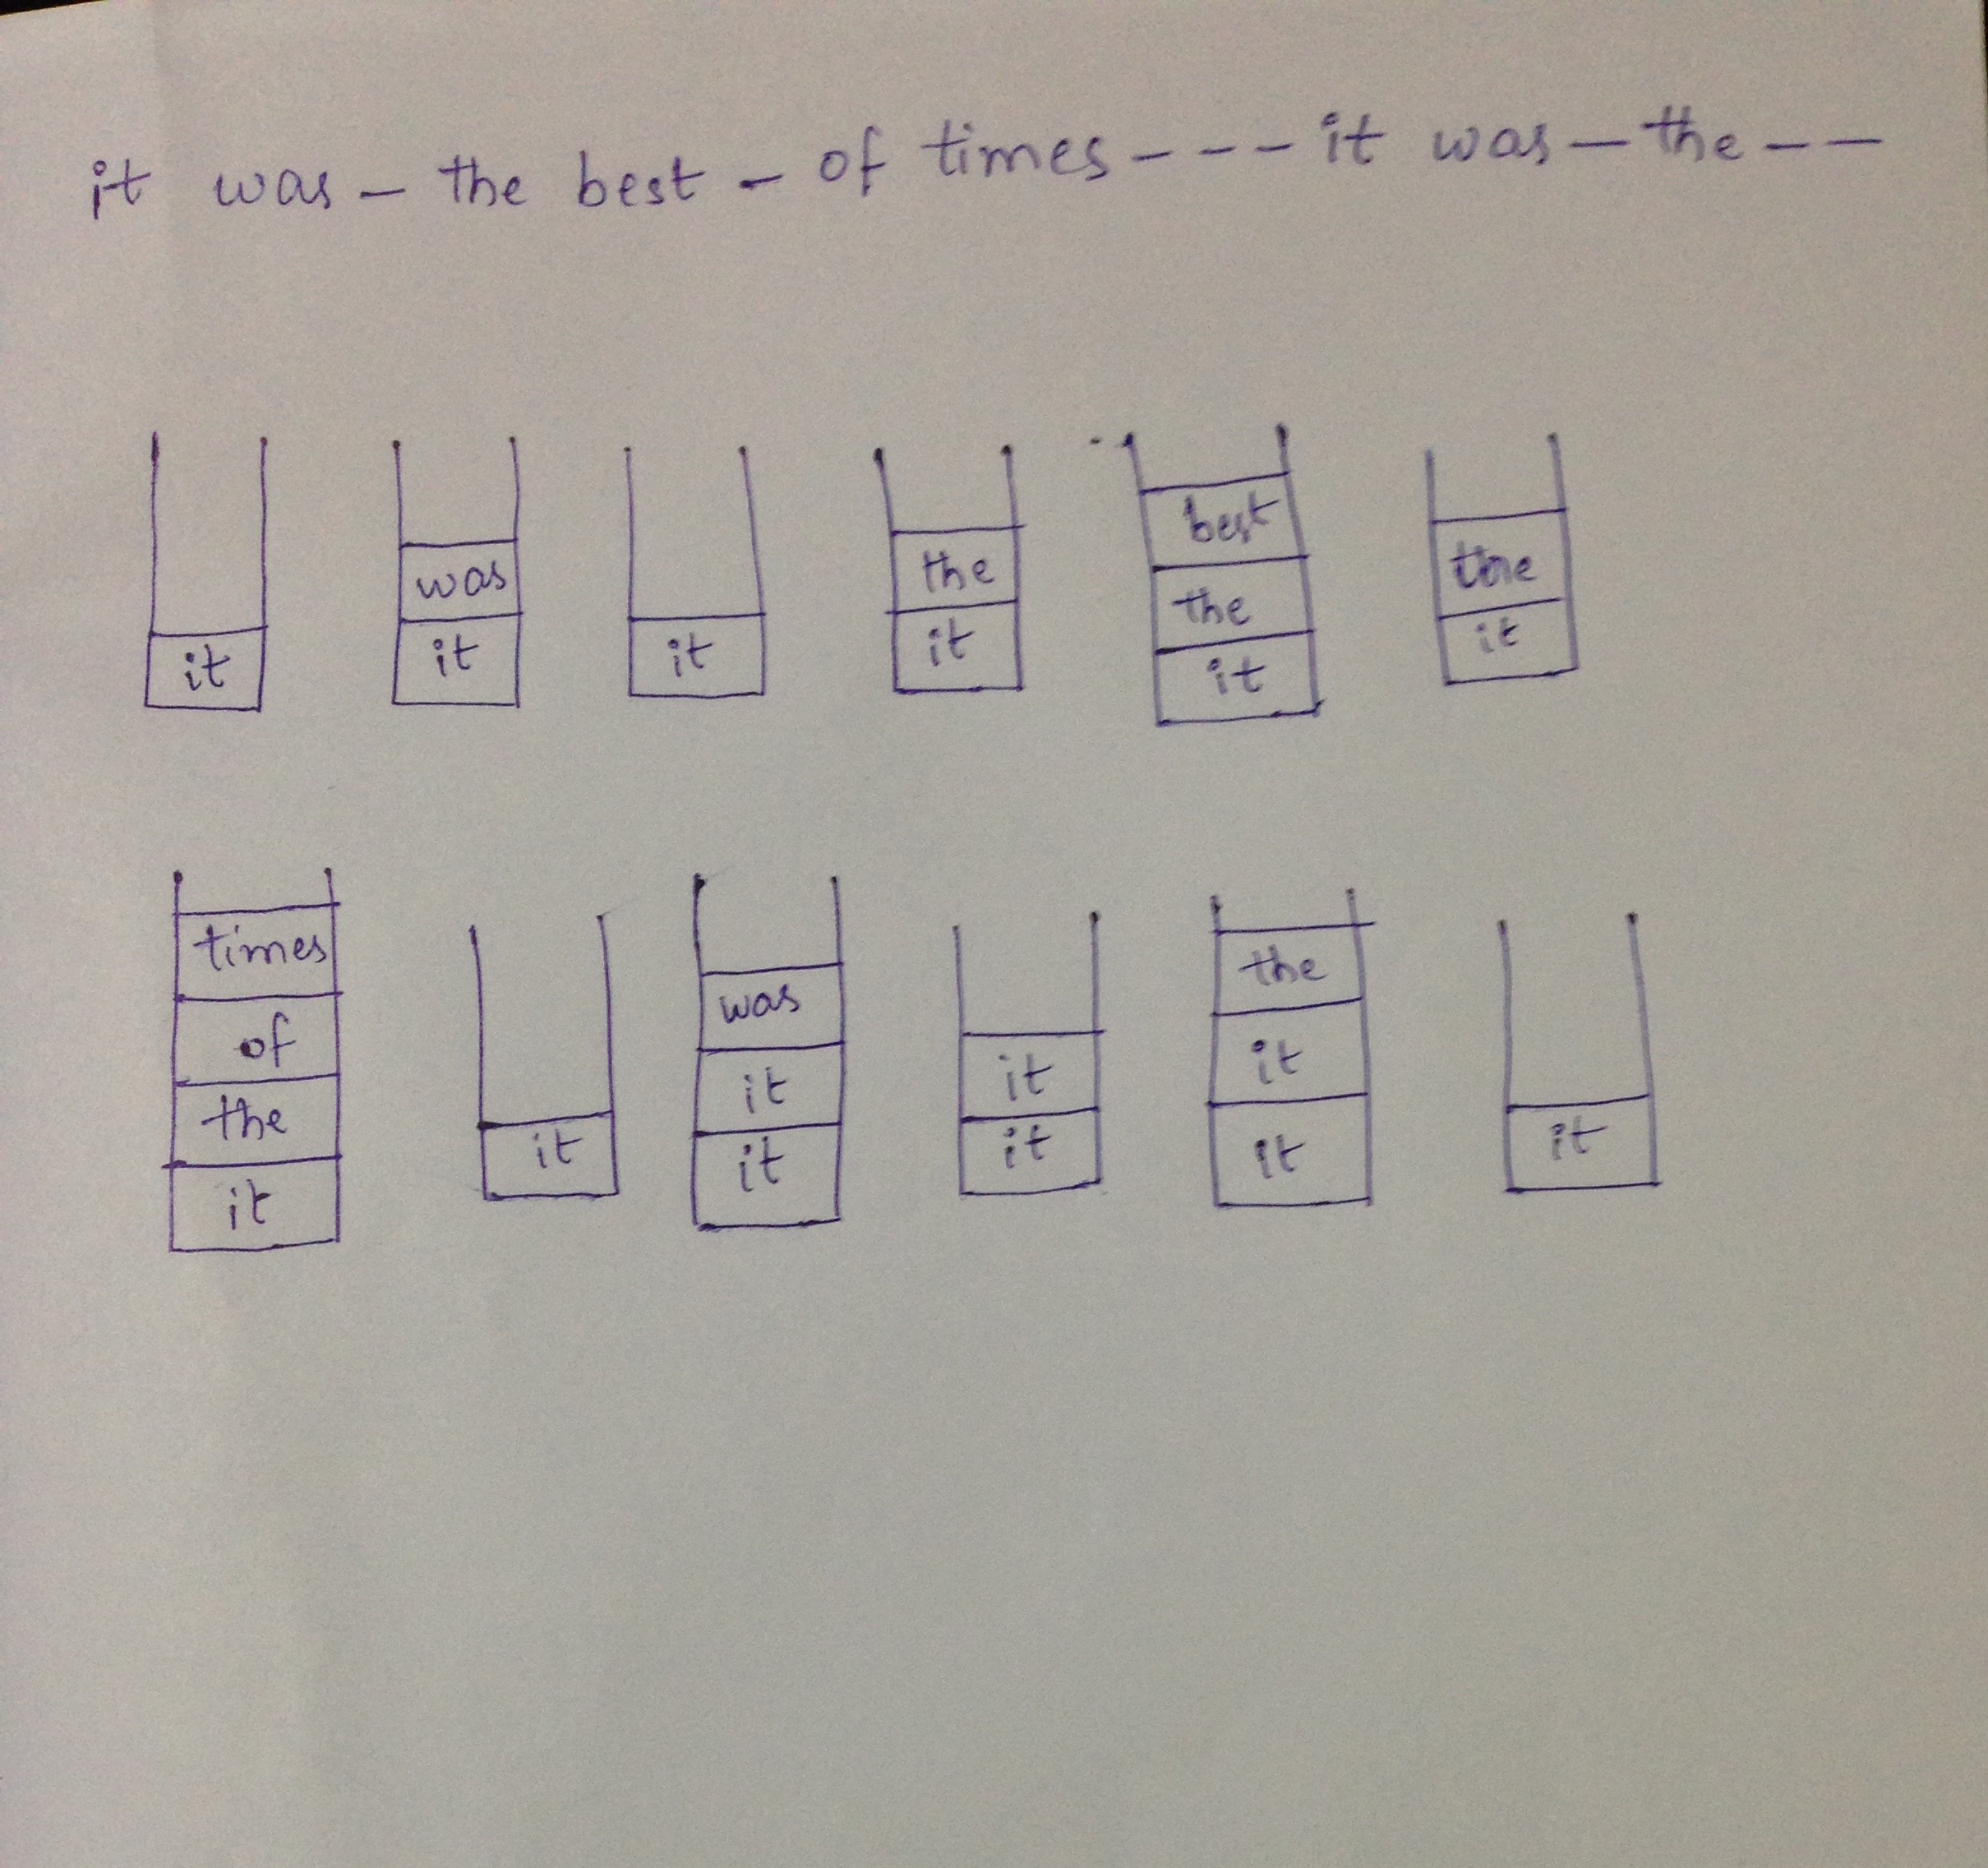 it was - the best - of times - - - it was - the - -
it
was
it
it
the
it
best
the
it
the
it
times
of
the
it
it
was
it
it
it
it
the
it
it
it